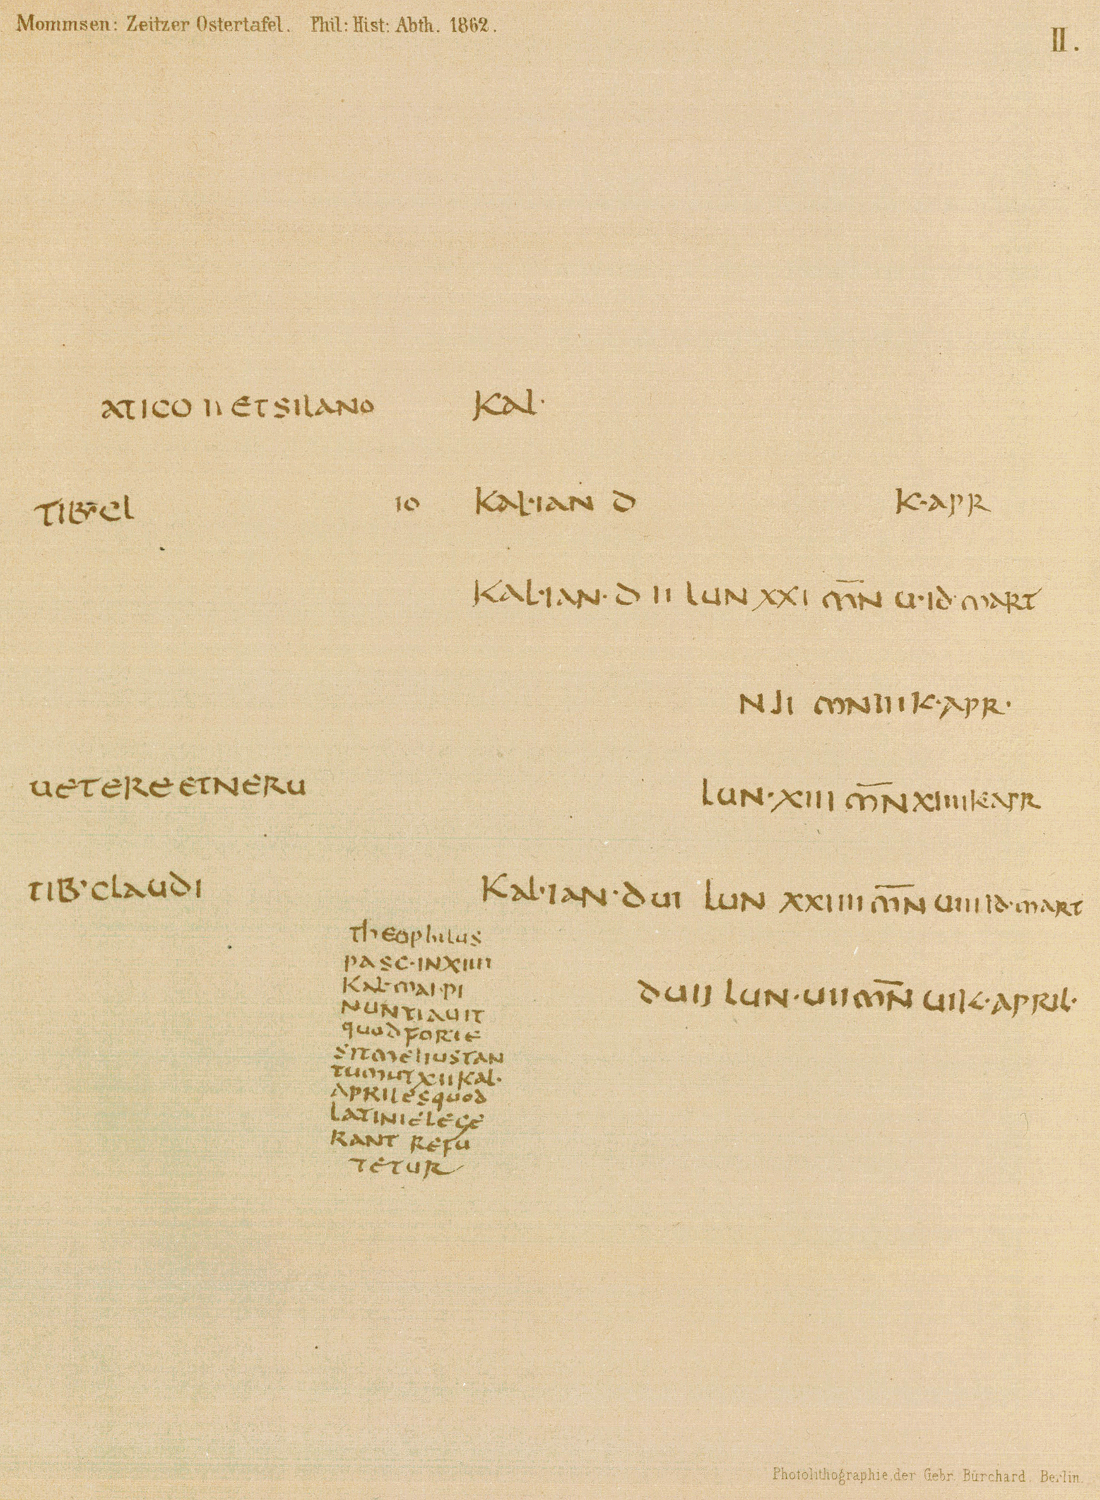 Mommsen: Zeitzer Ostertafel. Phil: Hist: Abth. 1862.
II.
ATICO II ET SILANO KAL·
TIB·CL IO KAL·IAN D K·APR
KAL·IAN· D II LUN XXI M̅N U·ID·MART
N JI MN III K·APR·
UETERE ET NERU LUN·XIII M̅N XIIII K APR
TIB·CLAUDI KAL·IAN·D UI LUN XXIIII M̅N UIIII ID·MART
THEOPHILUS
PASC·IN XIIII
KAL·MAI·PI
NUNTIAUIT
QUOD FORTE
SIT MELIUS TAN
TUM UT XII KAL·
APRILES QUOD
LATINI ELEGE
RANT REFU
TETUR
D UII LUN·UII M̅N UII K·APRIL·
Photolithographie der Gebr. Burchard. Berlin.